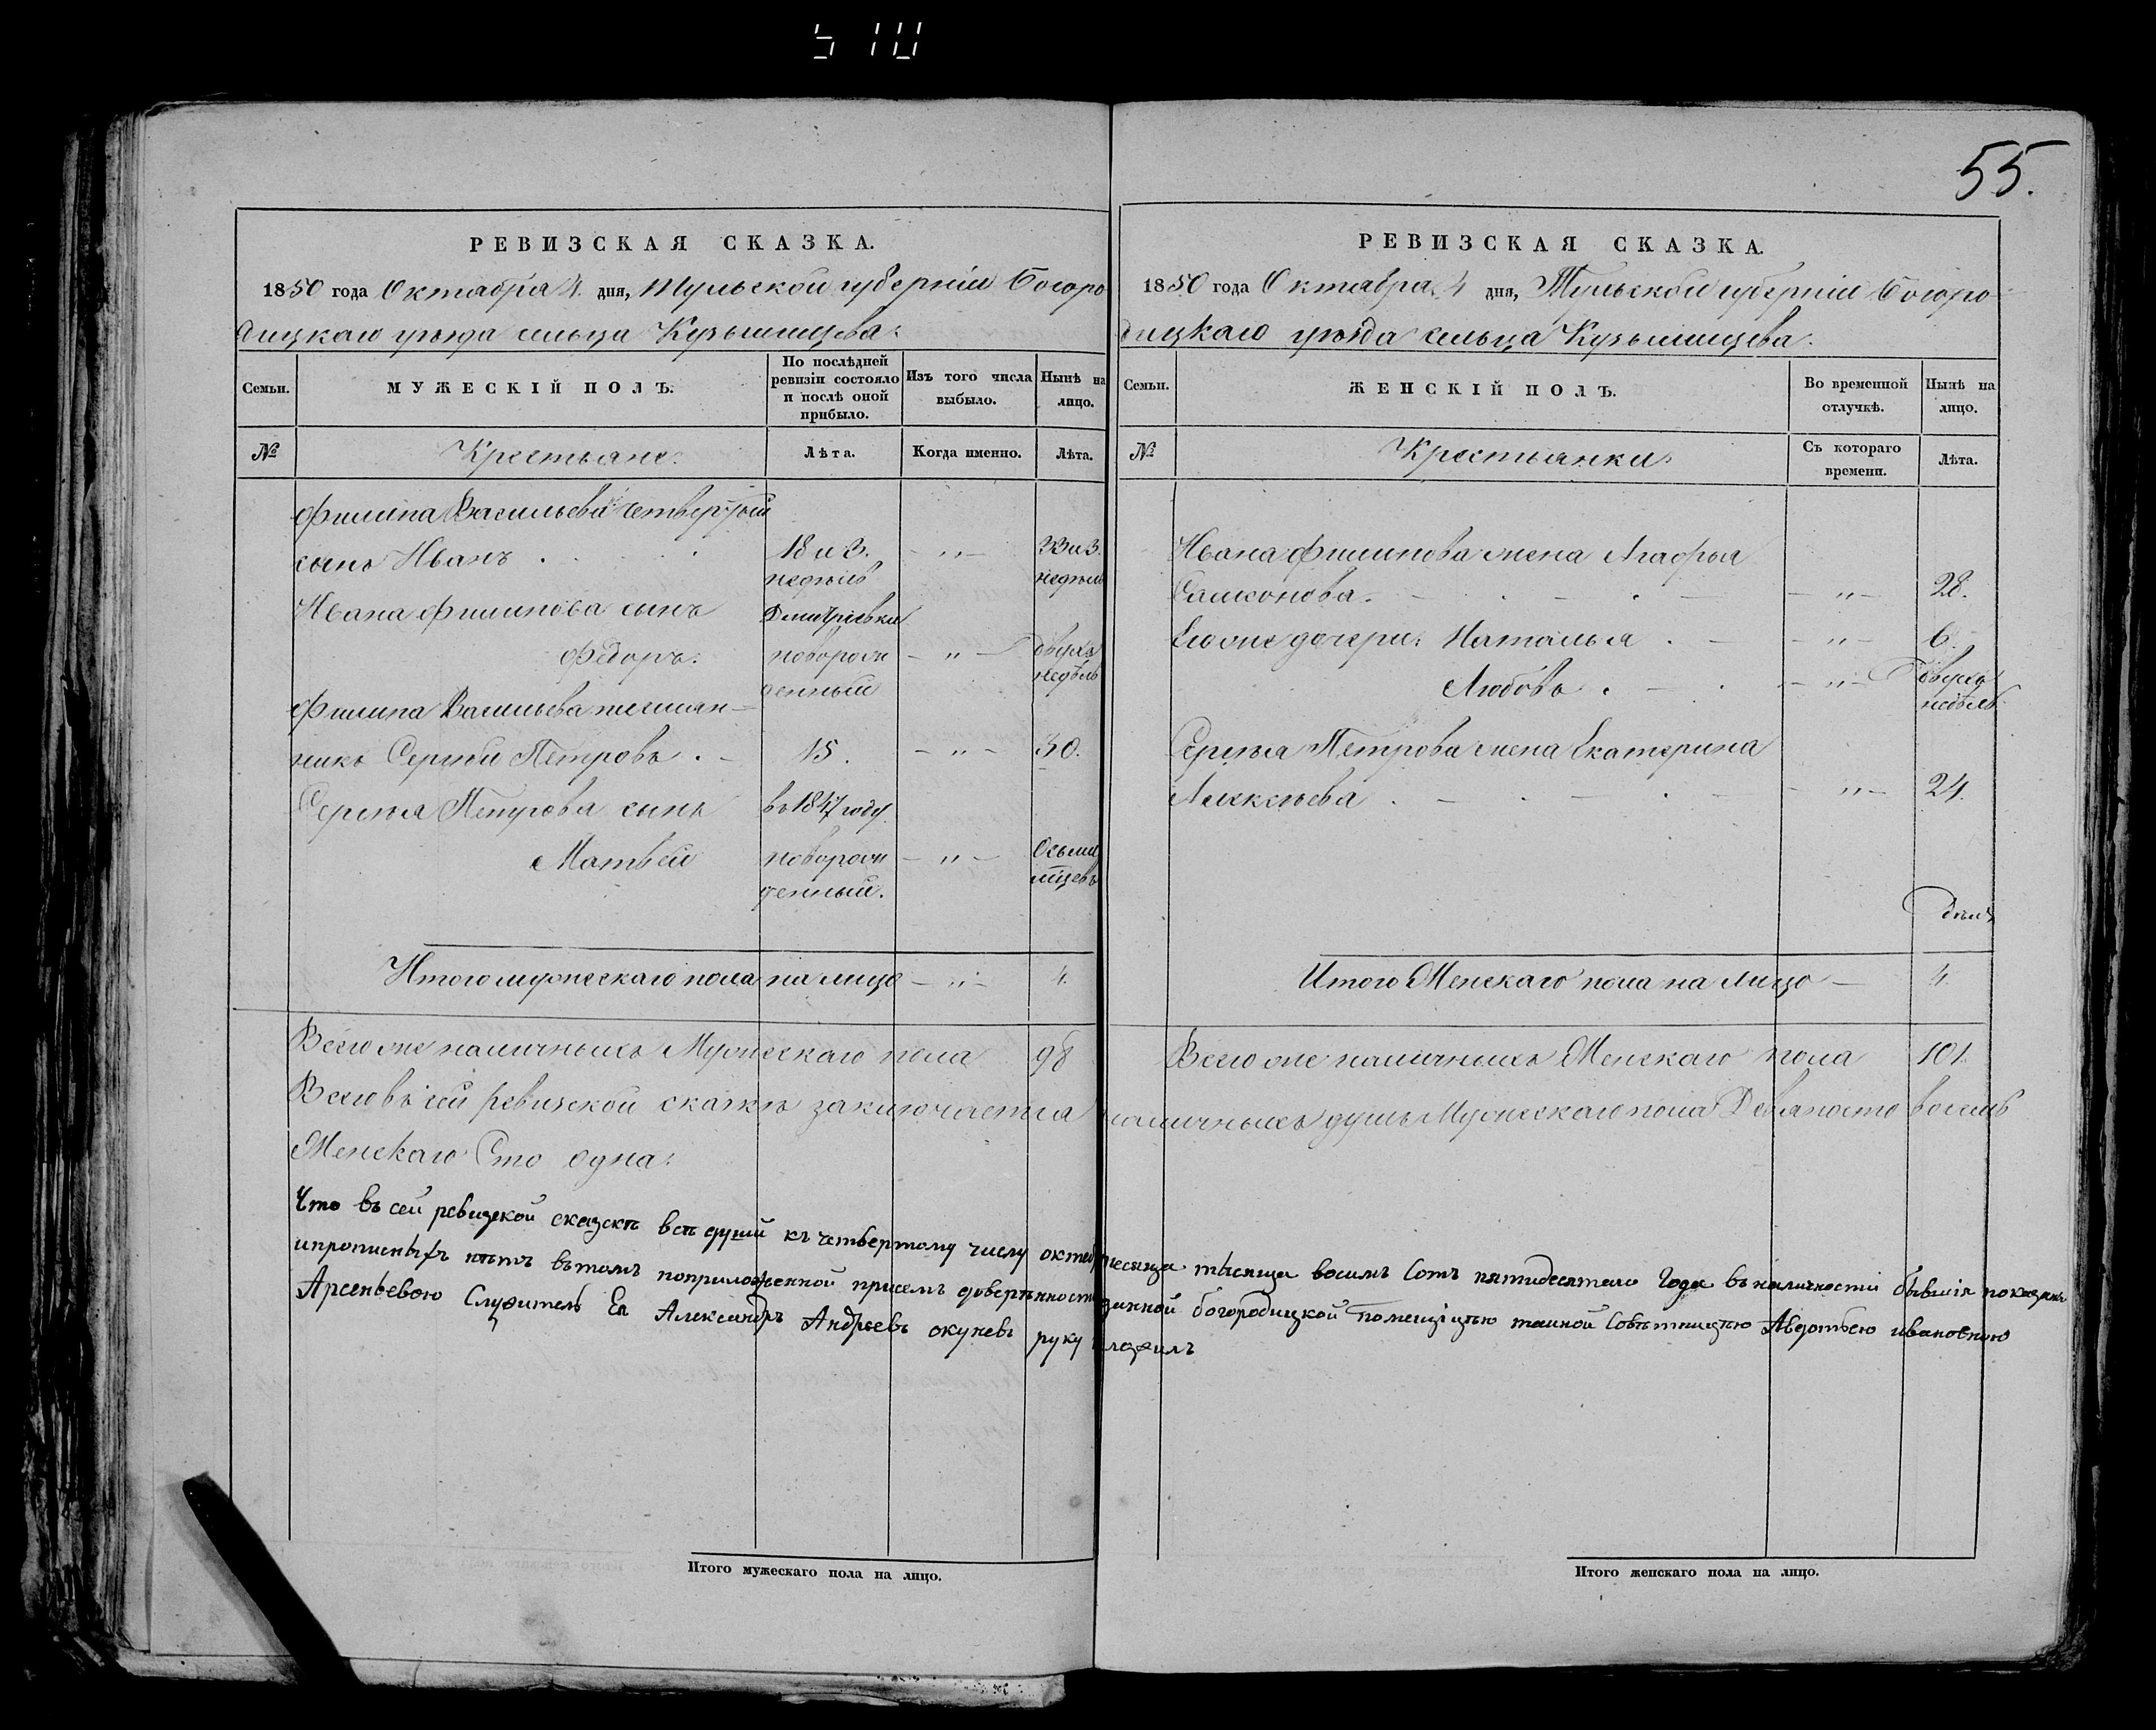 510
55.
РЕВИЗСКАЯ СКАЗКА.
1850 года Октября 4. дня, Тульской губерніи Богоро
дицкаго уѣзда сельца Кузьмищева.
Семьи.
МУЖЕСКІЙ ПОЛЪ.
По послѣдней
ревизіи состояло
и послѣ оной
прибыло.
Изъ того числа
выбыло.
Нынѣ на
лицо.
№
Крестьяне.
Лѣта.
Когда именно.
Лѣта.
Филипа Васильева четвертый
сынъ Иванъ . . . . 18 и 3. недѣль — „ — 33 и 3. недѣль
Ивана Филипова сынъ
Федоръ. новорож
денный — „ — двухъ
недѣль
Филипа Васильева племян—
никъ Сергѣй Петровъ . — 15. — „ — 30.
Сергѣя Петрова сынъ въ 1847 году
Матвей новорож
денный. — „ —
Итого мужескаго пола на лицо — „ — 4.
Всего же наличныхъ Мужескаго пола 98
РЕВИЗСКАЯ СКАЗКА.
1850 года Октября 4 дня, Тульской губерніи Богоро
дицкаго уѣзда сельца Кузьмищева.
Семьи.
ЖЕНСКІЙ ПОЛЪ.
Во временной
отлучкѣ.
Нынѣ на
лицо.
№
Крестьянки.
Съ котораго
времени.
Лѣта.
Ивана Филипова жена Агафья
— „ — 28.
Его же дочери: Наталья . — — „ — 6.
Любовь . — . — „ — двухъ
недѣль
Сергѣя Петрова жена Екатерина
Алексѣева . — . — . — — „ — 24.
Итого Женскаго пола на лицо — 4.
Всего же наличныхъ Женскаго пола 101.
Всего въ сей ревизской сказкѣ заключается наличныхъ душъ Мужескаго пола Девяносто восемь
Женскаго Сто одна.
Что въ сей ревизской сказкѣ всѣ душй къ четвертому числу октября месяца тысяща восимъ Сотъ пятидесятаго Года въ наличности бывшія показаны
ипрописныхъ нѣтъ вътомъ поприложенной присемъ доверѣнности данной богородицкой помещицею тайной Совѣтницею Авдотьею ивановною
Арсеньевою Служитель Ея Александръ Андреевъ окуневъ руку
Итого мужескаго пола на лицо.
Итого женскаго пола на лицо.